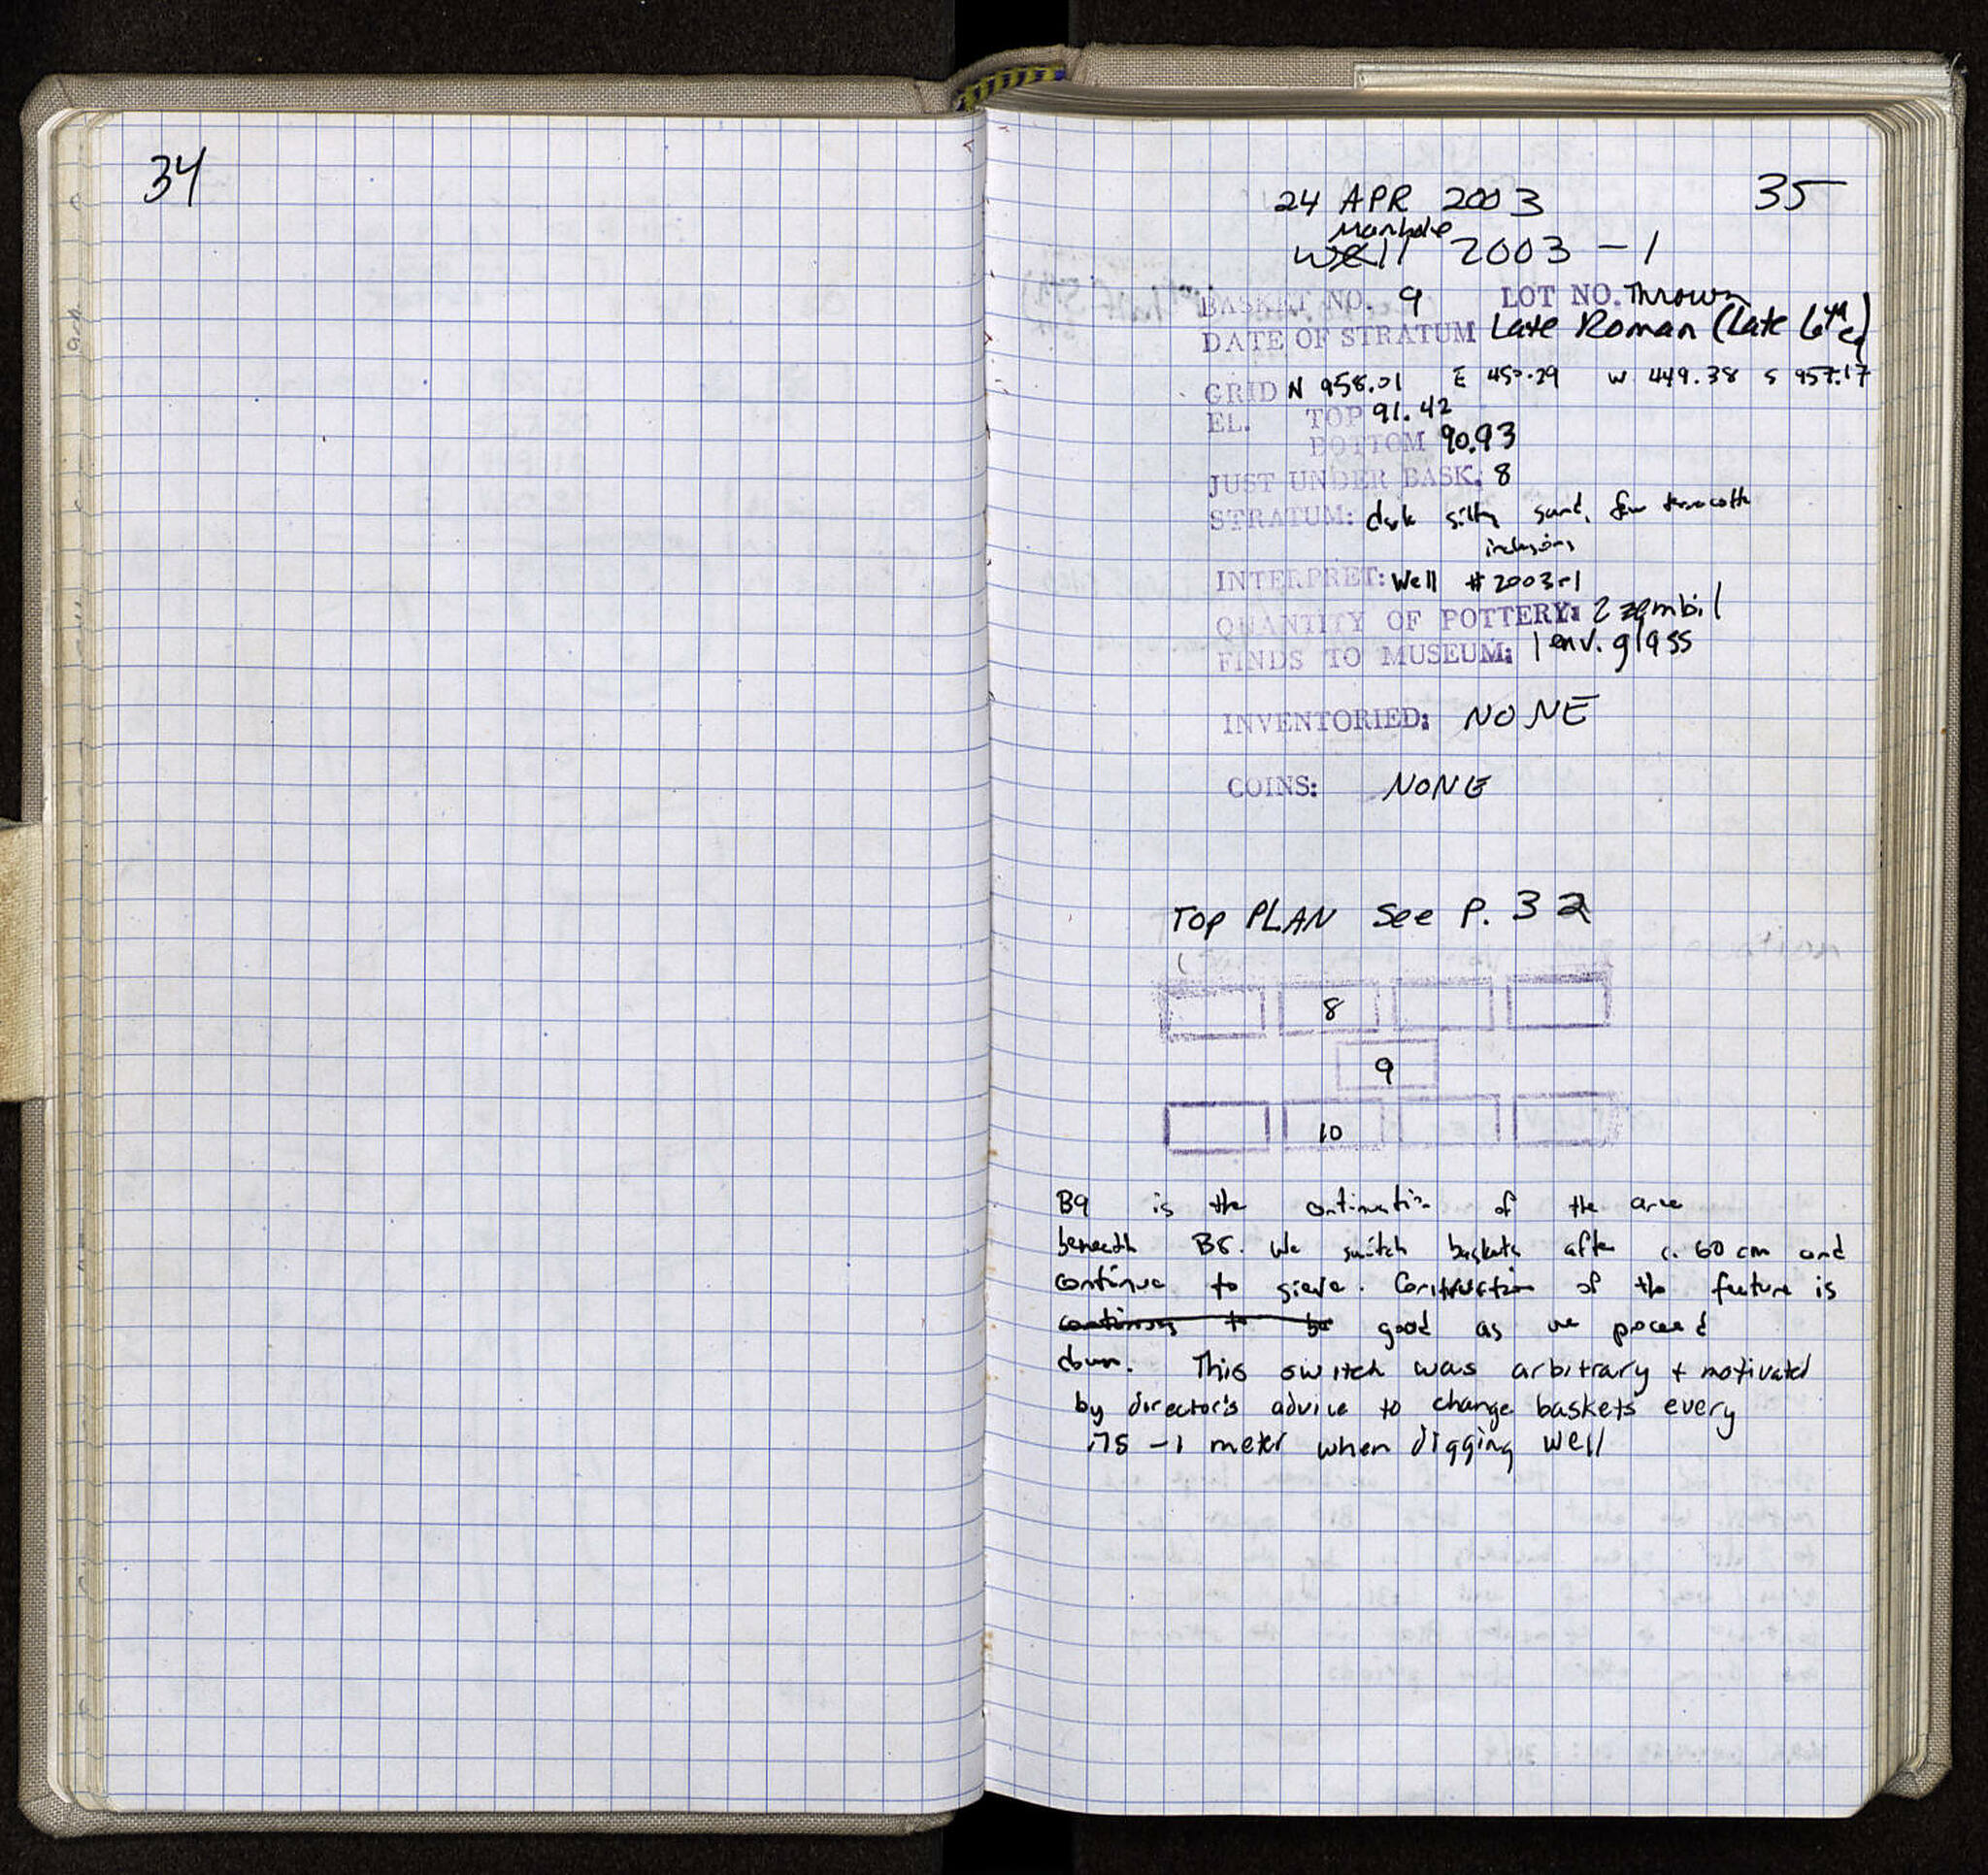 34
35
24 APR 2003
Manhole
well 2003 - 1
BASKET NO. 9 LOT NO. Thrown
DATE OF STRATUM Late Roman (Late 6th c)
GRID N 958.01 E 450.29 W 449.38 S 957.17
EL. TOP 91.42
BOTTOM 90.93
JUST UNDER BASK: 8
STRATUM: dark silty sand, few terracotta
inclusions
INTERPRET: Well #2003-1
QUANTITY OF POTTERY: 2 zembil
FINDS TO MUSEUM: 1 env. glass
INVENTORIED: NONE
COINS: NONE
TOP PLAN See P. 32
8
9
10
B9 is the continuation of the area
beneath B8. We switch baskets after c. 60 cm and
continue to sieve. Construction of the feature is
continues to be good as we proceed
down. This switch was arbitrary + motivated
by director's advice to change baskets every
.75 - 1 meter when digging well